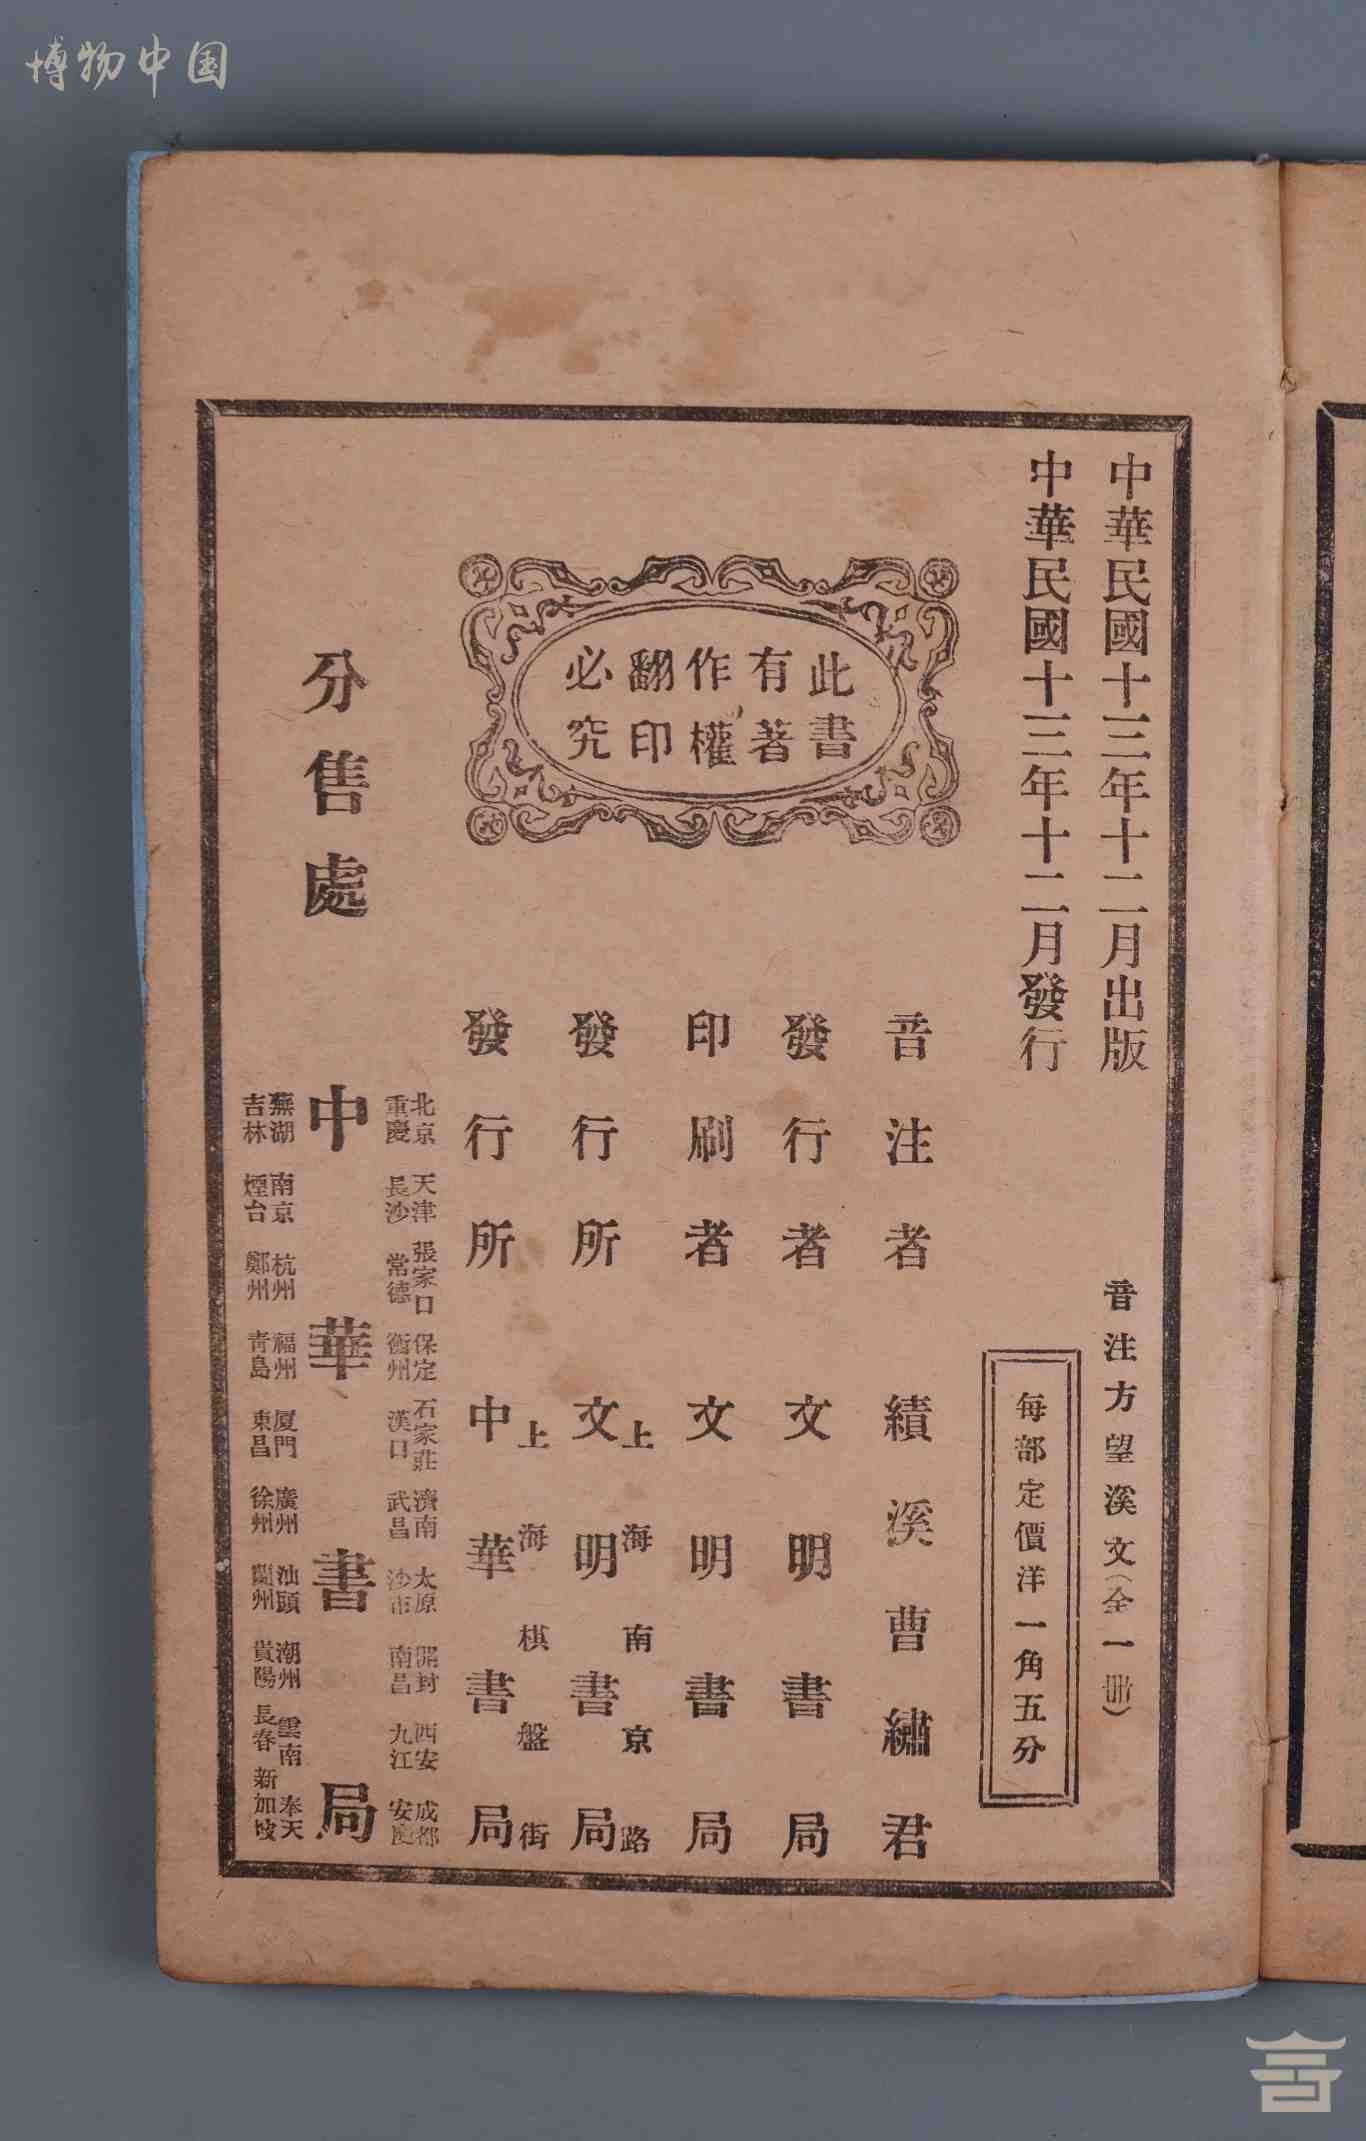 博物中国
中華民國十三年十二月出版
中華民國十三年十二月發行
音注方望溪文(全一冊)
每部定價洋一角五分
此書
有著
作權
翻印
必究
音注者 績溪曹繡君
發行者 文明書局
印刷者 文明書局
上海南京路
發行所 文明書局
上海棋盤街
發行所 中華書局
分售處
北京 天津 張家口 保定 石家莊 濟南 太原 開封 西安 成都
重慶 長沙 常德 衡州 漢口 武昌 沙市 南昌 九江 安慶
中華書局
蕪湖 南京 杭州 福州 厦門 廣州 汕頭 潮州 雲南 奉天
吉林 煙台 鄭州 青島 東昌 徐州 蘭州 貴陽 長春 新加坡